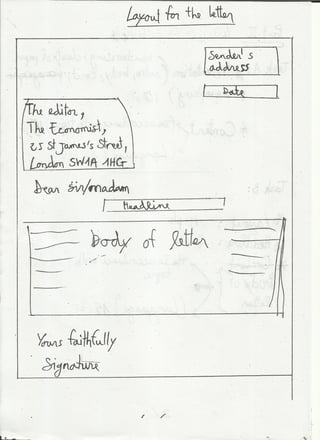 Layout for the letter
Sender's
address
Date
The editor,
The Economist,
25 St James's Street,
London SW1A 1HG
Dear Sir/madam
Headline
body of letter
Yours faithfully
Signature